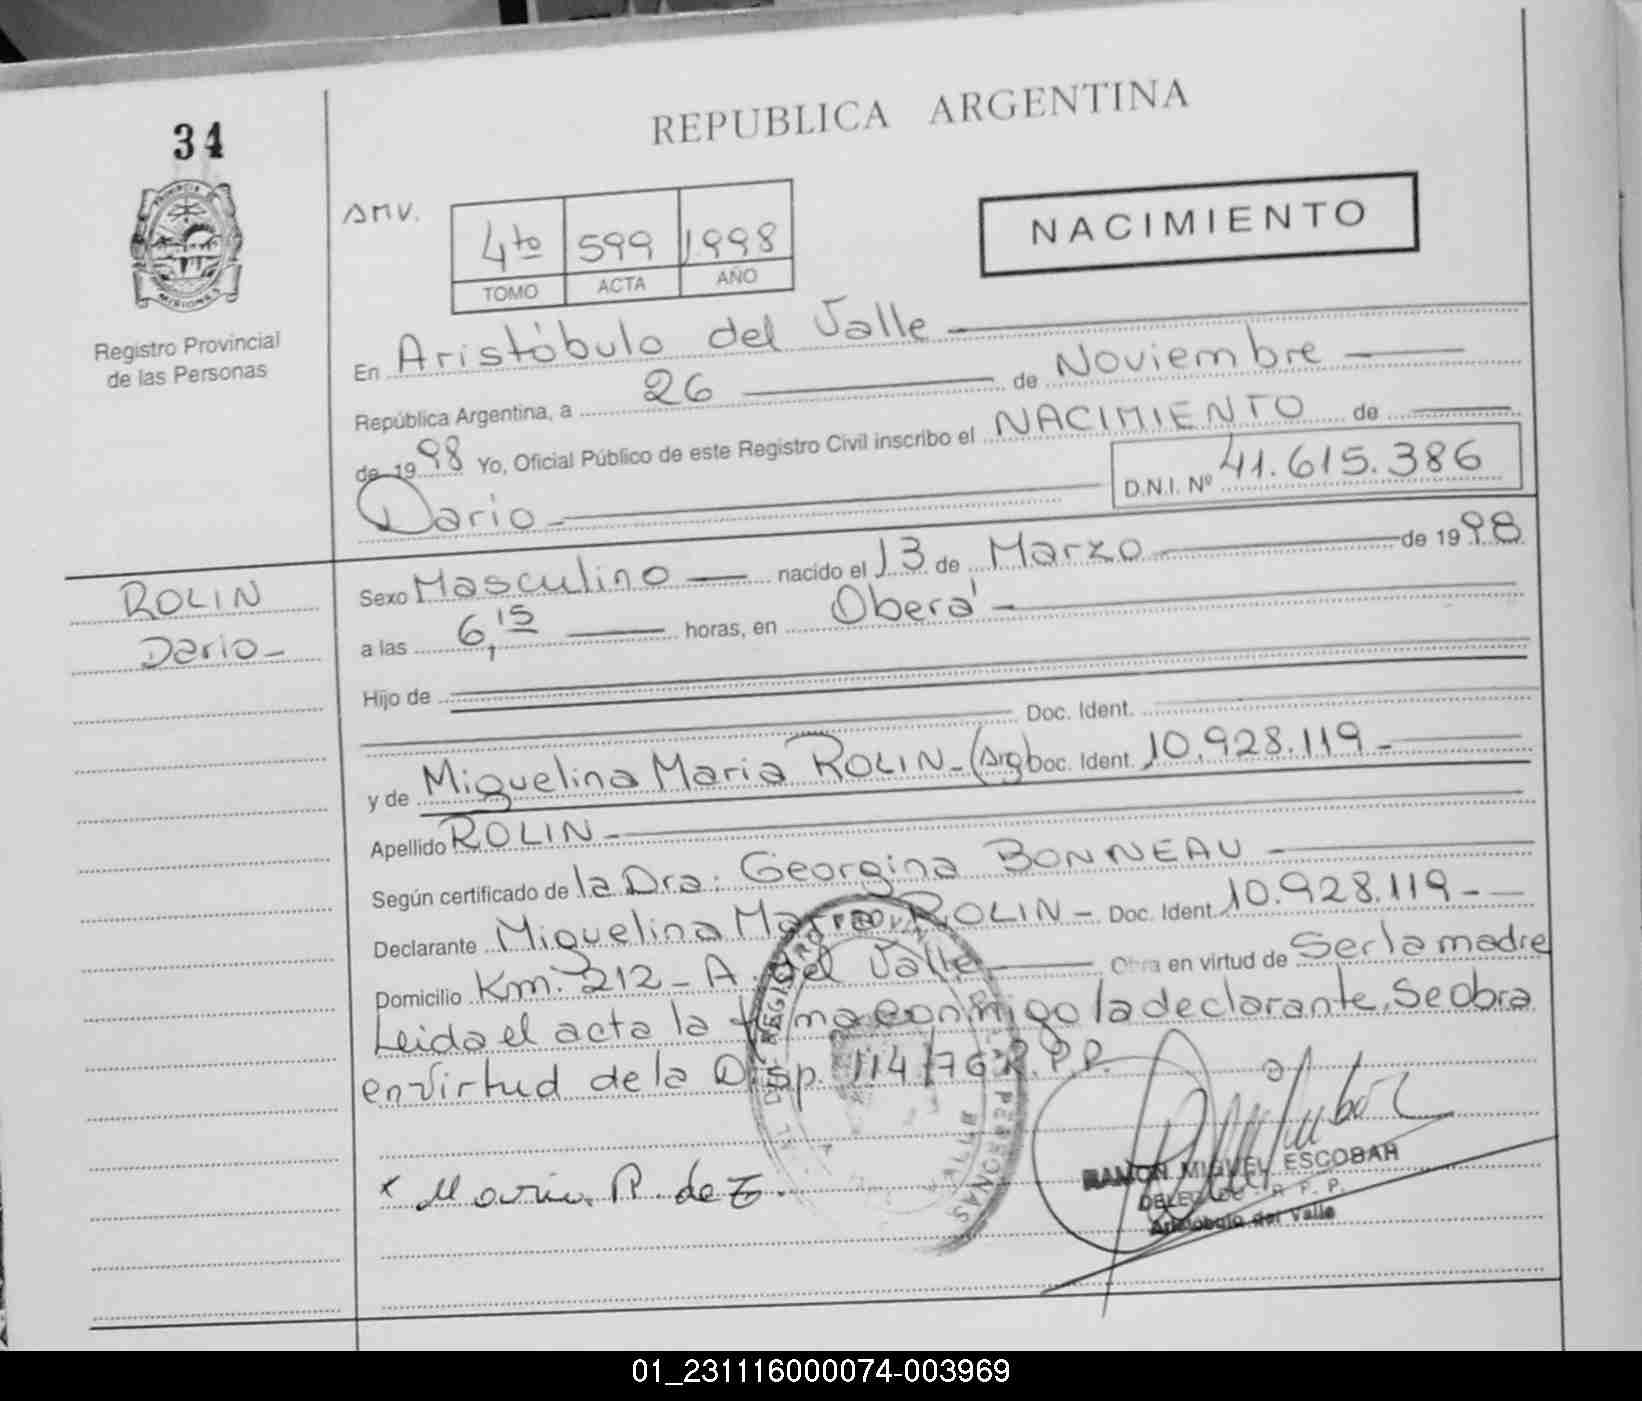 34
REPUBLICA ARGENTINA
PROVINCIA
MISIONES
Registro Provincial
de las Personas
AMV.
4to 599 1998
TOMO ACTA AÑO
NACIMIENTO
En Aristóbulo del Valle
República Argentina, a 26 de Noviembre
de 19 98 Yo, Oficial Público de este Registro Civil inscribo el NACIMIENTO de
Dario D.N.I. Nº 41.615.386
ROLIN
Dario
Sexo Masculino nacido el 13 de Marzo de 19 98
a las 6,15 horas, en Oberá
Hijo de
Doc. Ident.
y de Miguelina Maria ROLIN - (Arg) Doc. Ident. 10.928.119
Apellido ROLIN
Según certificado de la Dra: Georgina BONNEAU
Declarante Miguelina Maria ROLIN - Doc. Ident. 10.928.119
Domicilio Km: 212 - A. del Valle Obra en virtud de Ser la madre
Leida el acta la firma conmigo la declarante, Se obra
en virtud de la Disp. 114/76 R.P.P.
x Maria R. de
RAMON MIGUEL ESCOBAR
DELEGADO - R. P. P.
Aristobulo del Valle
01_231116000074-003969